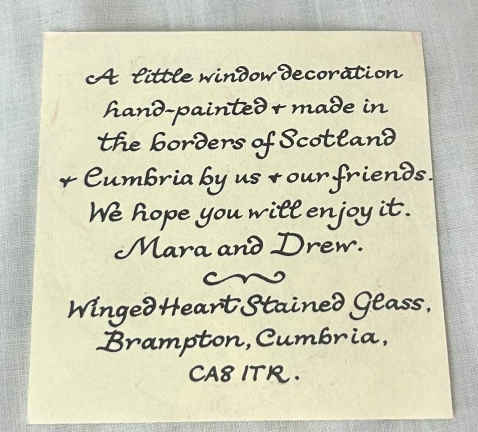 A little window decoration
hand-painted + made in
the borders of Scotland
+ Cumbria by us + our friends.
We hope you will enjoy it.
Mara and Drew.
Winged Heart Stained Glass,
Brampton, Cumbria,
CA8 1TR.